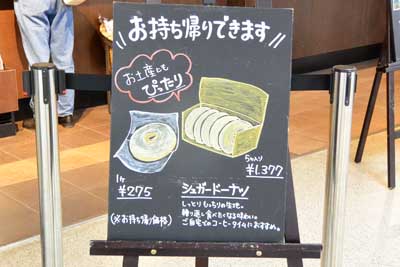 お持ち帰りできます
お土産にも
ぴったり
5ヶ入り
¥1,377
1ヶ
¥275
(※お持ち帰り価格)
シュガードーナツ
しっとりもっちりの生地。
繰り返し食べたくなる味わい。
ご自宅でのコーヒータイムにおすすめ。